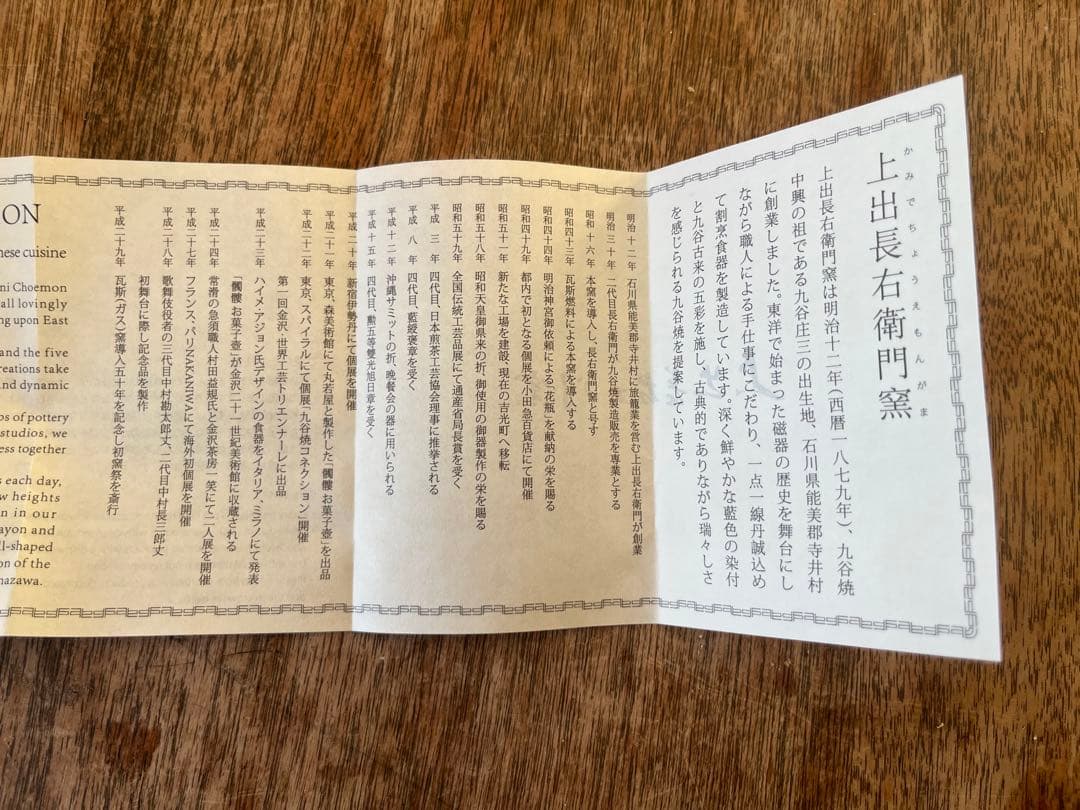 かみでちょうえもんがま
上出長右衛門窯
上出長右衛門窯は明治十二年(西暦一八七九年)、九谷焼
中興の祖である九谷庄三の出生地、石川県能美郡寺井村
に創業しました。東洋で始まった磁器の歴史を舞台にし
ながら職人による手仕事にこだわり、一点一線丹誠込め
て割烹食器を製造しています。深く鮮やかな藍色の染付
と九谷古来の五彩を施し、古典的でありながら瑞々しさ
を感じられる九谷焼を提案しています。
明治十二年 石川県能美郡寺井村に旅籠業を営む上出長右衛門が創業
明治三十年 二代目長右衛門が九谷焼製造販売を専業とする
昭和十六年 本窯を導入し、長右衛門窯と号す
昭和四十三年 瓦斯燃料による本窯を導入する
昭和四十四年 明治神宮御依頼による「花瓶」を献納の栄を賜る
昭和四十九年 都内で初となる個展を小田急百貨店にて開催
昭和五十一年 新たな工場を建設、現在の吉光町へ移転
昭和五十八年 昭和天皇御県来の折、御使用の御器製作の栄を賜る
昭和五十九年 全国伝統工芸品展にて通産省局長賞を受く
平成三年 四代目、日本煎茶工芸協会理事に推挙される
平成八年 四代目、藍綬褒章を受く
平成十二年 沖縄サミットの折、晩餐会の器に用いられる
平成十五年 四代目、勲五等雙光旭日章を受く
平成二十年 新宿伊勢丹にて個展を開催
平成二十一年 東京、森美術館にて丸若屋と製作した「髑髏 お菓子壺」を出品
平成二十二年 東京、スパイラルにて個展「九谷焼コネクション」開催
第一回金沢・世界工芸トリエンナーレに出品
平成二十三年 ハイメ・アジョン氏デザインの食器をイタリア、ミラノにて発表
「髑髏 お菓子壺」が金沢二十一世紀美術館に収蔵される
平成二十四年 常滑の急須職人村田益規氏と金沢茶房一笑にて二人展を開催
平成二十七年 フランス、パリNAKANIWAにて海外初個展を開催
平成二十八年 歌舞伎役者の三代目中村勘太郎丈、二代目中村長三郎丈
初舞台に際し記念品を製作
平成二十九年 瓦斯(ガス)窯導入五十年を記念し初窯祭を斎行
ON
nese cuisine
ni Choemon
all lovingly
ng upon East
and the five
reations take
and dynamic
os of pottery
studios, we
ess together
s each day,
w heights
n in our
ayon and
ll-shaped
on of the
nazawa.